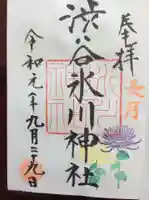 奉拝
長月
渋谷氷川神社
令和元年九月二十九日